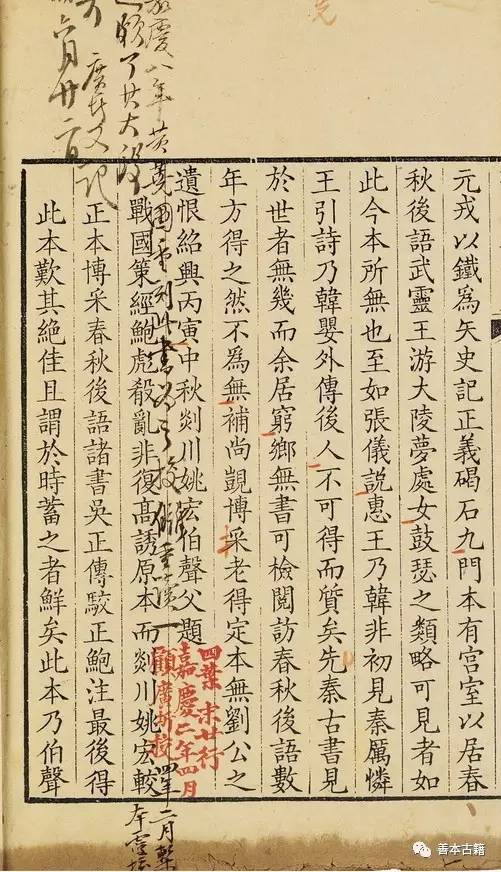 元戎以鐵爲矢史記正義碣石九門本有宫室以居春
秋後語武靈王游大陵夢處女鼓瑟之類略可見者如
此今本所無也至如張儀説惠王乃韓非初見秦厲憐
王引詩乃韓嬰外傳後人不可得而質矣先秦古書見
於世者無幾而余居窮鄉無書可檢閲訪春秋後語數
年方得之然不爲無補尚覬博采老得定本無劉公之
遺恨紹興丙寅中秋剡川姚宏伯聲父題
戰國策經鮑彪殽亂非復髙誘原本而剡川姚宏較
正本博采春秋後語諸書吳正傳駮正鮑注最後得
此本歎其絶佳且謂於時蓄之者鮮矣此本乃伯聲
嘉慶八年黄蕘圃重刻此書
六月廿
記
四葉末廿行
嘉慶二年四月
顧廣圻校
二月
善本古籍